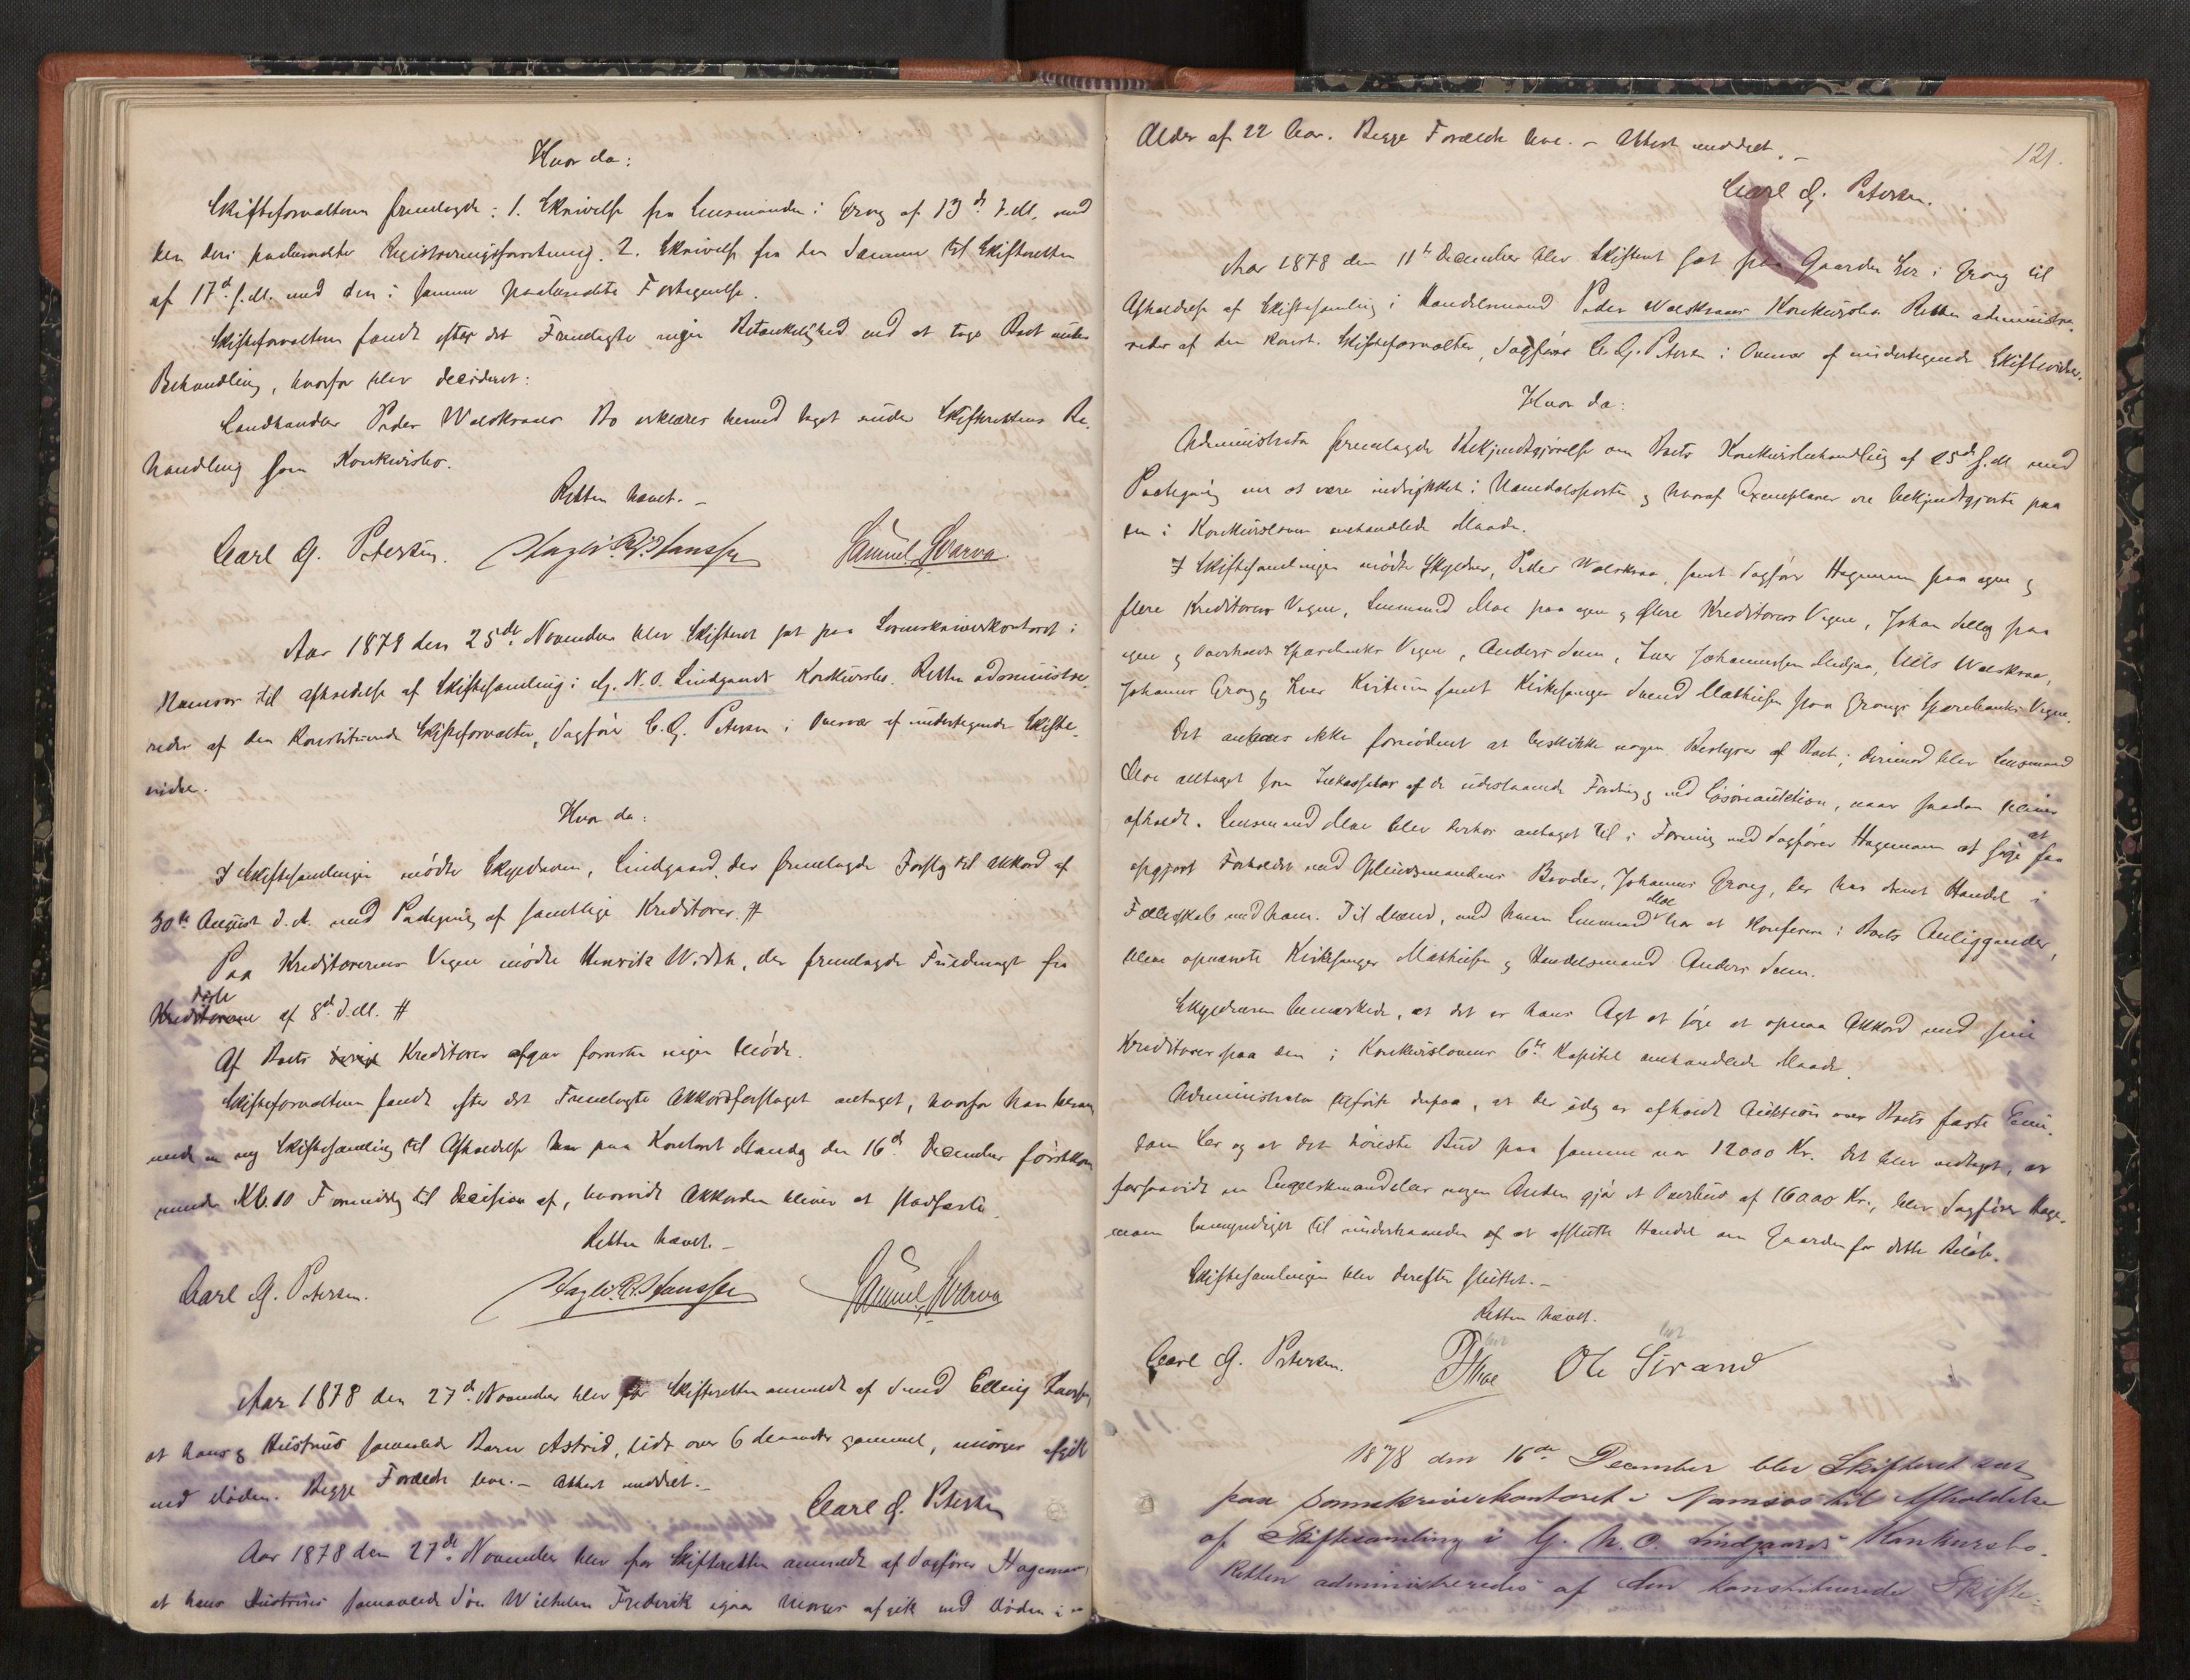 Hvor da:
Skifteforvalteren fremlagde: 1. Skrivelse fra Lensmanden i Grong af 13de d.M. med
den deri paaberaabte Registreringsforretning. 2. Skrivelse fra den Samme til Skifteretten
af 17de s.M. med den i samme paaberaabte Fortegnelse.
Skifteforvalteren fandt efter det Fremlagte ingen Betænkelighed ved at tage Boet under
Behandling, hvorfor blev decideret:
Landhandler Peder Walskraas Bo erklæres herved taget under Skifterettens Be-
handling som Konkursbo.
Retten hævet. –
Carl G. Petersen. Samuel Svarva
Aar 1878 den 25de November blev Skifteret sat paa Sorenskriverkontoret i
Namsos til Afholdelse af Skiftesamling i G. N. O. Lindgaards Konkursbo. Retten administre-
redes af den konstituerede Skifteforvalter, Sagfører C. G. Petersen i Overvær af undertegnede Skifte-
vidner.
Hvor da:
I Skiftesamlingen mødte Skyldneren, Lindgaard, der fremlagde Forslag til Akkord af
30te August d.A. med Paategning af samtlige Kreditorer. #
Paa Kreditorernes Vegne mødte Henrik , der fremlagde Fuldmagt fra
disse
af 8de d.M. #
Af Boets øvrige Kreditorer afgav forresten ingen Møde.
Skifteforvalteren fandt efter det Fremlagte Akkordforslaget antaget, hvorfor han beram-
mede en ny Skiftesamling til Afholdelse her paa Kontoret Mandag den 16de December førstkom-
mende Kl. 10 Formiddag til Decision af, hvorvidt Akkorden bliver at stadfæste.
Retten hævet. –
Carl G. Petersen. Samuel Svarva
Aar 1878 den 27de November blev for Skifteretten anmeldt af Svend Elling
at hans og Hustrues sammenavlede Barn Astrid, lidt over 6 Maaneder gammel, imorges afgik
ved Døden. Begge Forældre leve. – Attest meddelt. –
Carl G. Petersen
Aar 1878 den 27de November blev for Skifteretten anmeldt af Sagfører Hagemann,
at hans Hustrues sammenavlede Søn Wilhelm Frederik igaar Morges afgik ved Døden i en
Alder af 22 Aar. Begge Forældre leve. – Attest meddelt. –
121.
Carl G. Petersen.
Aar 1878 den 11te December blev Skifteret sat paa Gaarden Ler i Grong til
Afholdelse af Skiftesamling i Handelsmand Peder Walskraas Konkursbo. Retten administre-
redes af den konst. Skifteforvalter, Sagfører C. G. Petersen i Overvær af undertegnede Skiftevidner.
Hvor da:
Administrator fremlagde Bekjendtgjørelse om Boets Konkursbehandling af 25de f.M. med
Paategning om at være indrykket i Namdalsposten og hvoraf Exemplarer ere bekjendtgjorte paa
den i Konkursloven omhandlede Maade.
I Skiftesamlingen mødte Skyldner, Peder Walskraa, samt Sagfører Hagemann paa egne og
flere Kreditorers Vegne, Lensmand Moe paa egne og flere Kreditorers Vegne, Johan Selleg paa
egne og Overhalds Sparebanks Vegne, Anders Sem, Iver Johannessen , Nils Walskraa,
Johannes Grong, Iver samt Kirkesanger Svend Mathiesen paa Grongs Sparebanks Vegne.
Det ansaaes ikke fornødent at beskikke nogen Bestyrer af Boet; derimod blev Lensmand
Moe antaget som Inkassator af de udestaaende Fordringer og ved Løsøreauktion, naar saadan bliver
afholdt. Lensmand Moe blev derhos antaget til i Forening med Sagfører Hagemann at søge at faa
opgjort Forholdet med Opsidsmandens Broder, Johannes Grong, der har drevet Handel i
Fællesskab med ham. Til Mænd, med hvem Lensmand Moe har at konferere i Boets Anliggender,
bleve opnævnte Kirkesanger Mathiesen og Handelsmand Anders Sem.
Skyldneren bemærkede, at det er hans Agt at søge at opnaa Akkord med sine
Kreditorer paa den i Konkurslovens 6te Kapitel omhandlede Maade.
Administrator tilførte derpaa, at der idag er afholdt Auktion over Boets faste Eien-
dom Ler og at det høieste Bud paa samme var 12000 Kr. Det blev vedtaget, at
forsaavidt en Engelskmand eller nogen Anden gjør et Overbud af 16000 Kr., blev Sagfører Hage-
mann bemyndiget til underhaanden af at afslutte Handel om Gaarden for dette Beløb.
Skiftesamlingen blev derefter sluttet. –
Retten hævet.
Carl G. Petersen. Moe Ole Strand
1878 den 16de December blev Skifteret sat
paa Sorenskriverkontoret i Namsos til Afholdelse
af Skiftesamling i G. N. O. Lindgaards Konkursbo.
Retten administreredes af den konstituerede Skifte-